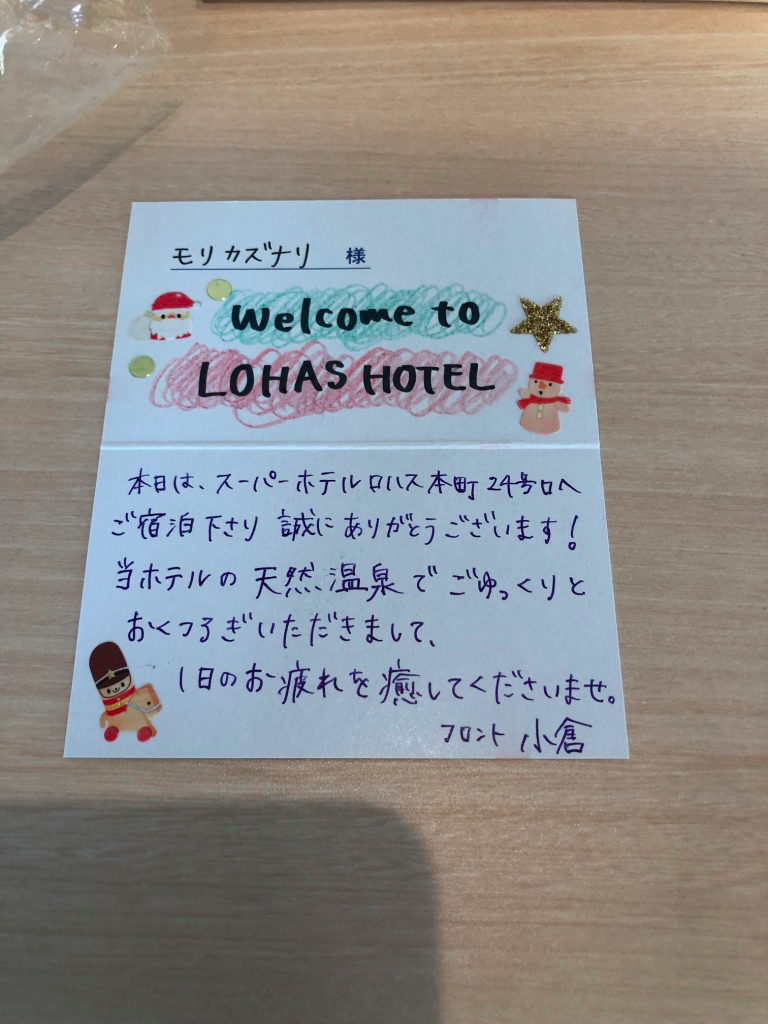 モリ カズナリ 様
Welcome to
LOHAS HOTEL
本日は、スーパーホテルロハス本町24号口へ
ご宿泊下さり 誠にありがとうございます!
当ホテルの天然温泉でごゆっくりと
おくつろぎいただきまして、
1日のお疲れを癒してくださいませ。
フロント 小倉